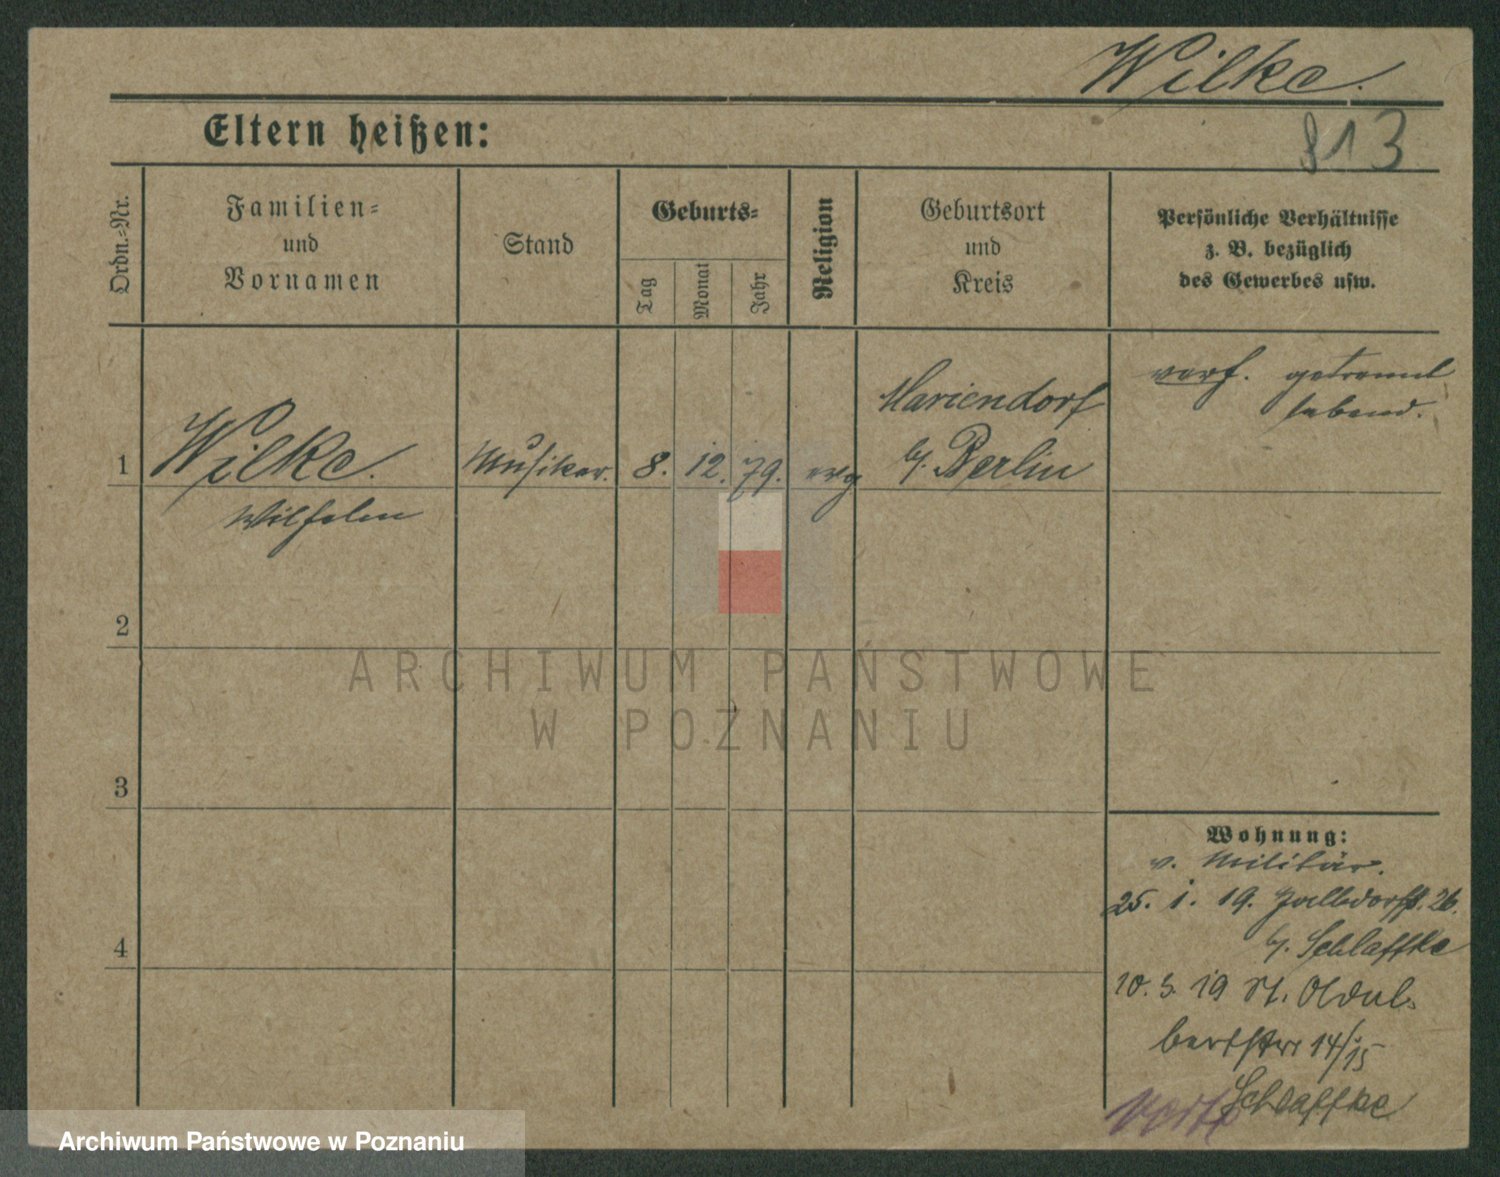 Wilke.
813
Eltern heißen:
Ordn.-Nr.
Familien-
und
Vornamen
Stand
Geburts-
Tag
Monat
Jahr
Religion
Geburtsort
und
Kreis
Persönliche Verhältnisse
z. B. bezüglich
des Gewerbes usw.
1
Wilke.
Wilhelm
Musiker.
8. 12. 79.
evg
Mariendorf
b/. Berlin
verh. getrennt
lebend.
2
3
4
Wohnung:
v. Militär.
25. 1. 19. 26.
b/. Schlaffke
10. 3. 19 St. Adal-
bertstr 14/15
Schlaffke
ARCHIWUM PAŃSTWOWE
W POZNANIU
Archiwum Państwowe w Poznaniu